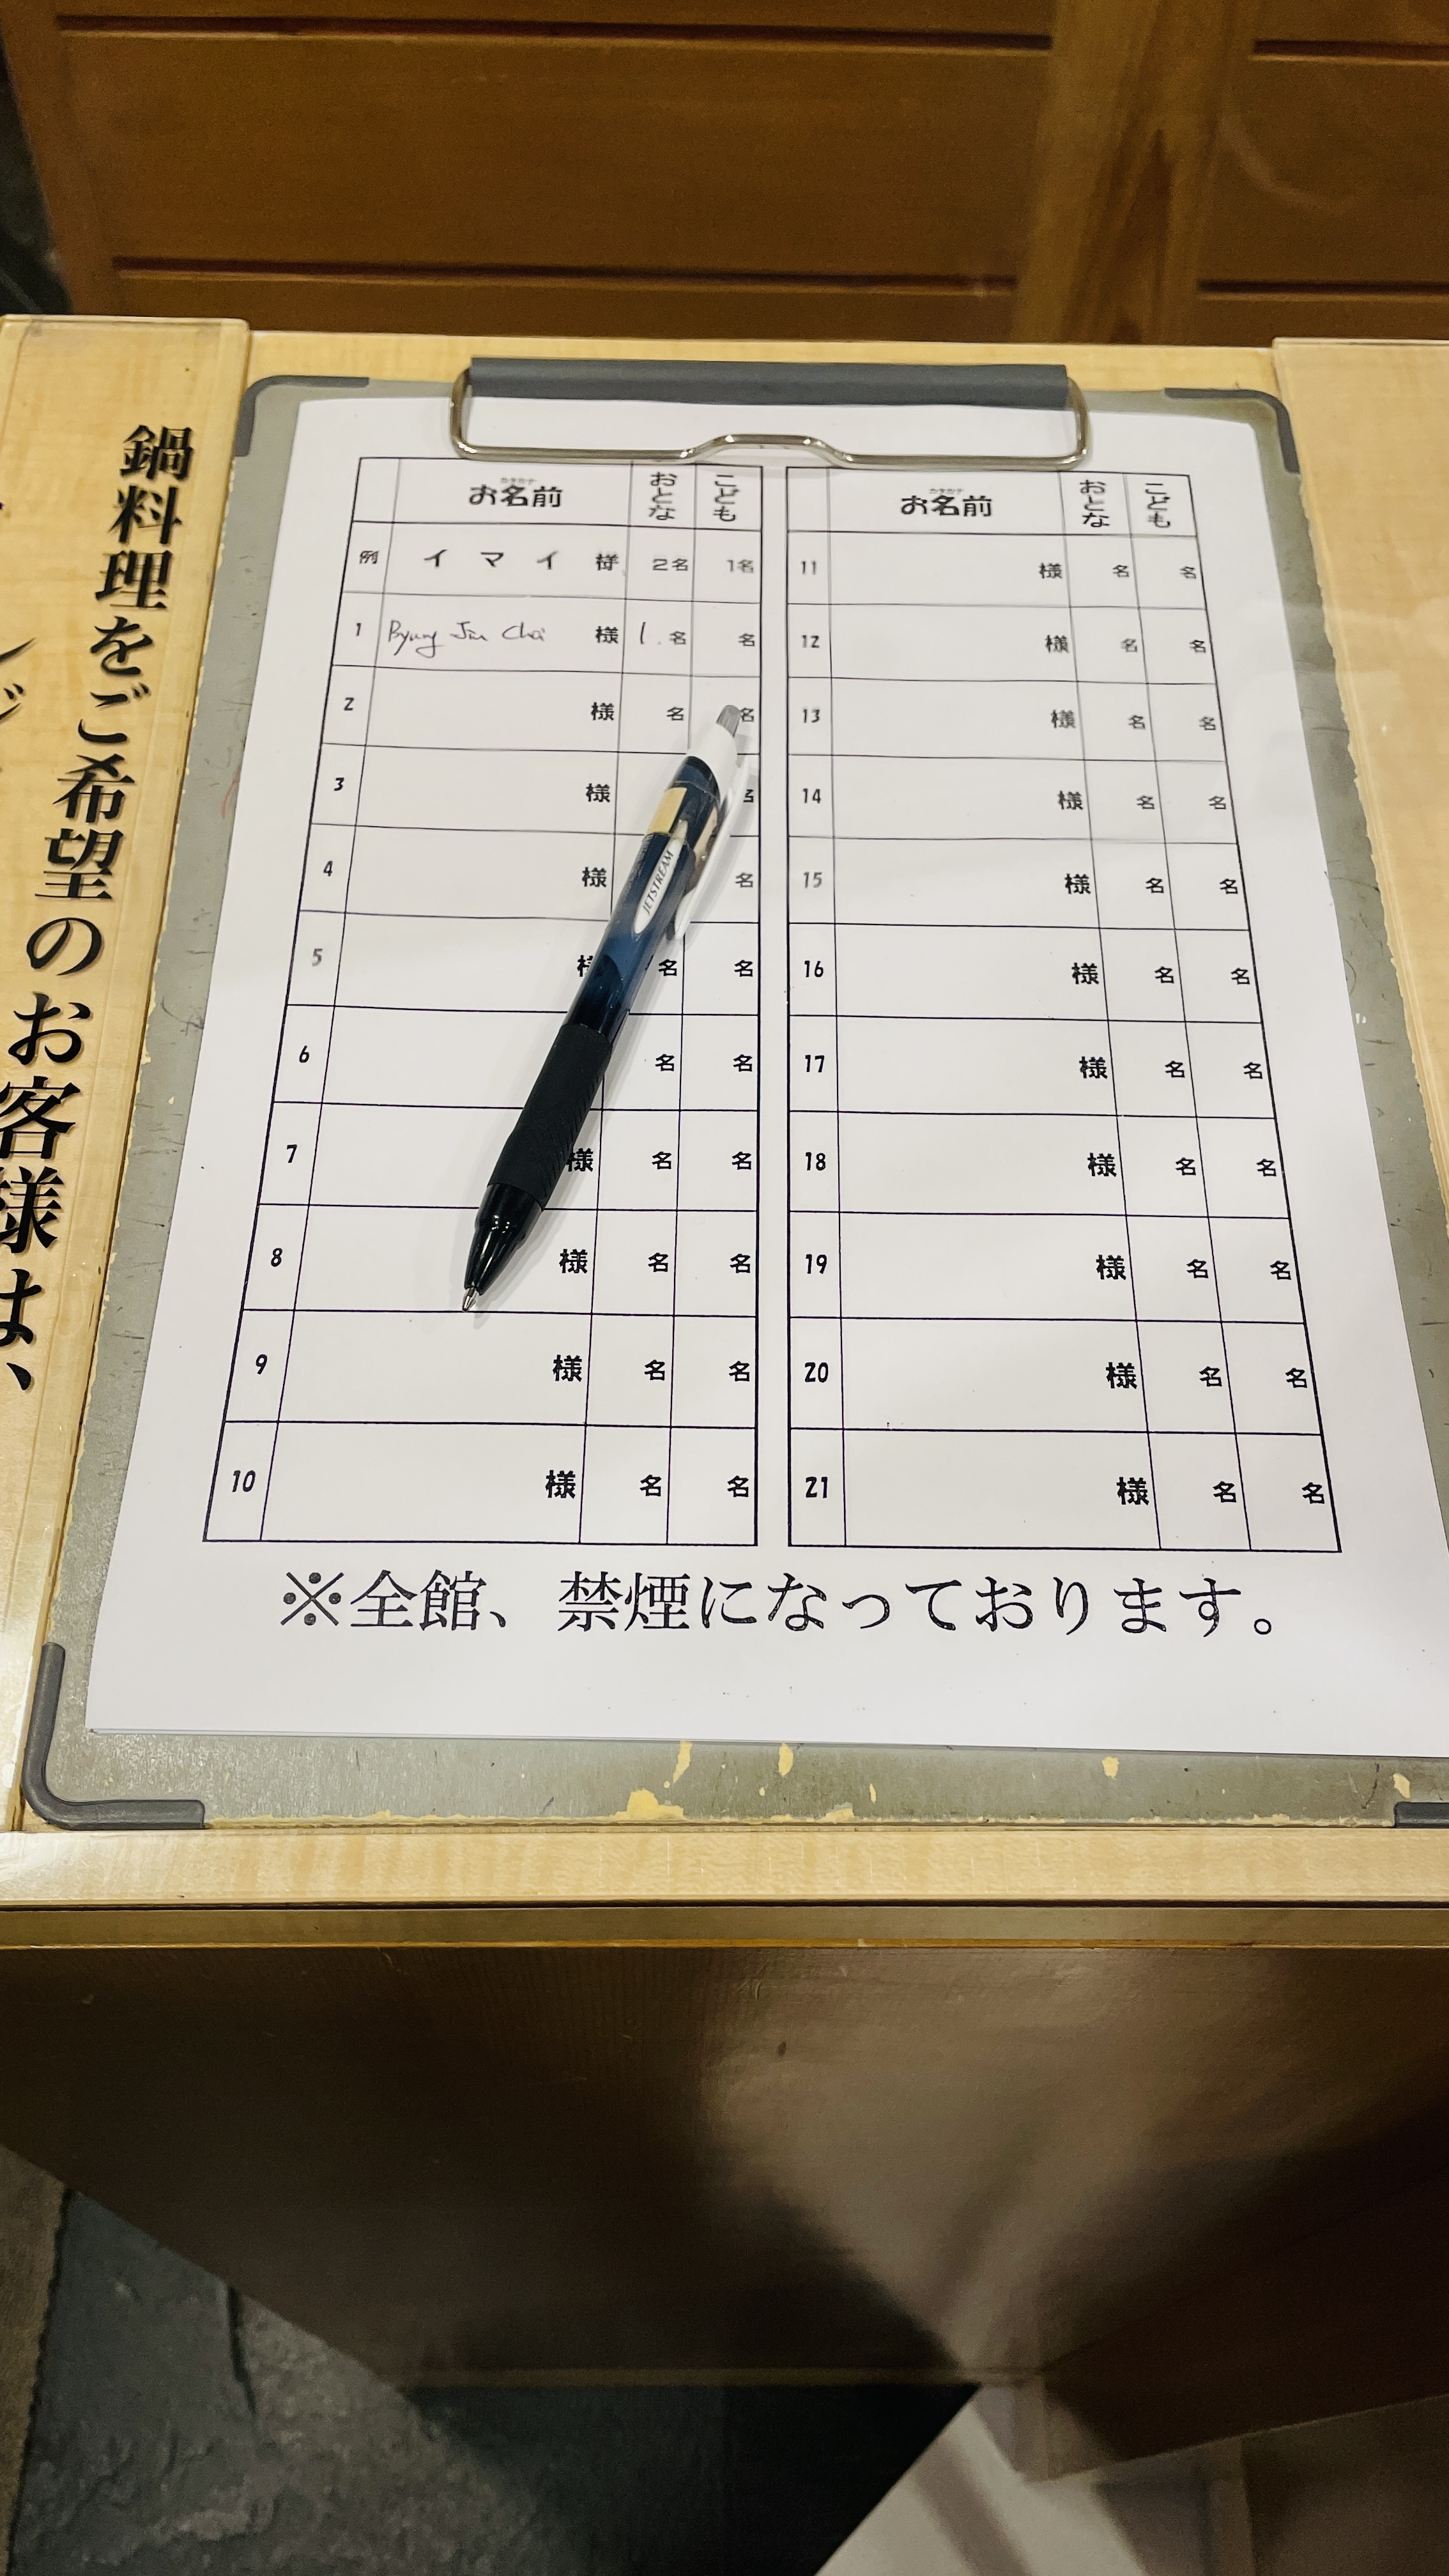 鍋料理をご希望のお客様は、
カタカナ
お名前 おとな こども
例 イマイ 様 2名 1名
1 Byung Jin Choi 様 1. 名 名
2 様 名 名
3 様 名
4 様 名
5 様 名 名
6 名 名
7 様 名 名
8 様 名 名
9 様 名 名
10 様 名 名
カタカナ
お名前 おとな こども
11 様 名 名
12 様 名 名
13 様 名 名
14 様 名 名
15 様 名 名
16 様 名 名
17 様 名 名
18 様 名 名
19 様 名 名
20 様 名 名
21 様 名 名
JETSTREAM
※全館、禁煙になっております。